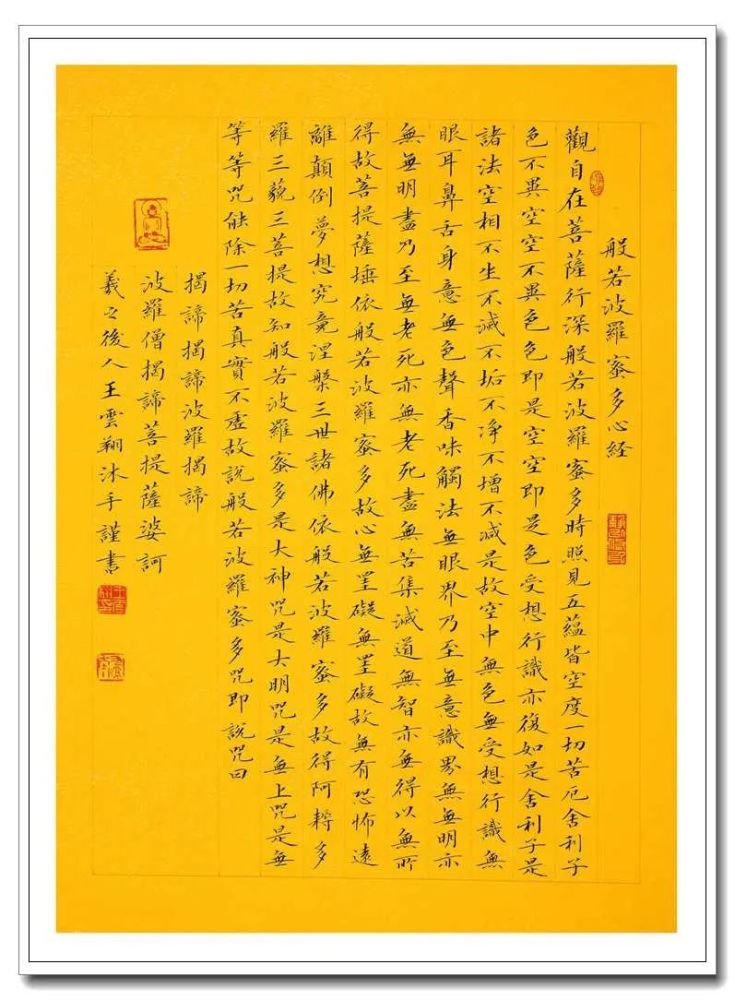 般若波羅蜜多心経
觀自在菩薩行深般若波羅蜜多時照見五蘊皆空度一切苦厄舍利子
色不異空空不異色色即是空空即是色受想行識亦復如是舍利子是
諸法空相不生不滅不垢不净不增不減是故空中無色無受想行識無
眼耳鼻舌身意無色聲香味觸法無眼界乃至無意識界無無明亦
無無明盡乃至無老死亦無老死盡無苦集滅道無智亦無得以無所
得故菩提薩埵依般若波羅蜜多故心無罣礙無罣礙故無有恐怖遠
離顛倒夢想究竟涅槃三世諸佛依般若波羅蜜多故得阿耨多
羅三藐三菩提故知般若波羅蜜多是大神咒是大明咒是無上咒是無
等等咒能除一切苦真實不虛故說般若波羅蜜多咒即說咒曰
揭諦揭諦波羅揭諦
波羅僧揭諦菩提薩婆訶
羲之後人王雲翔沐手謹書